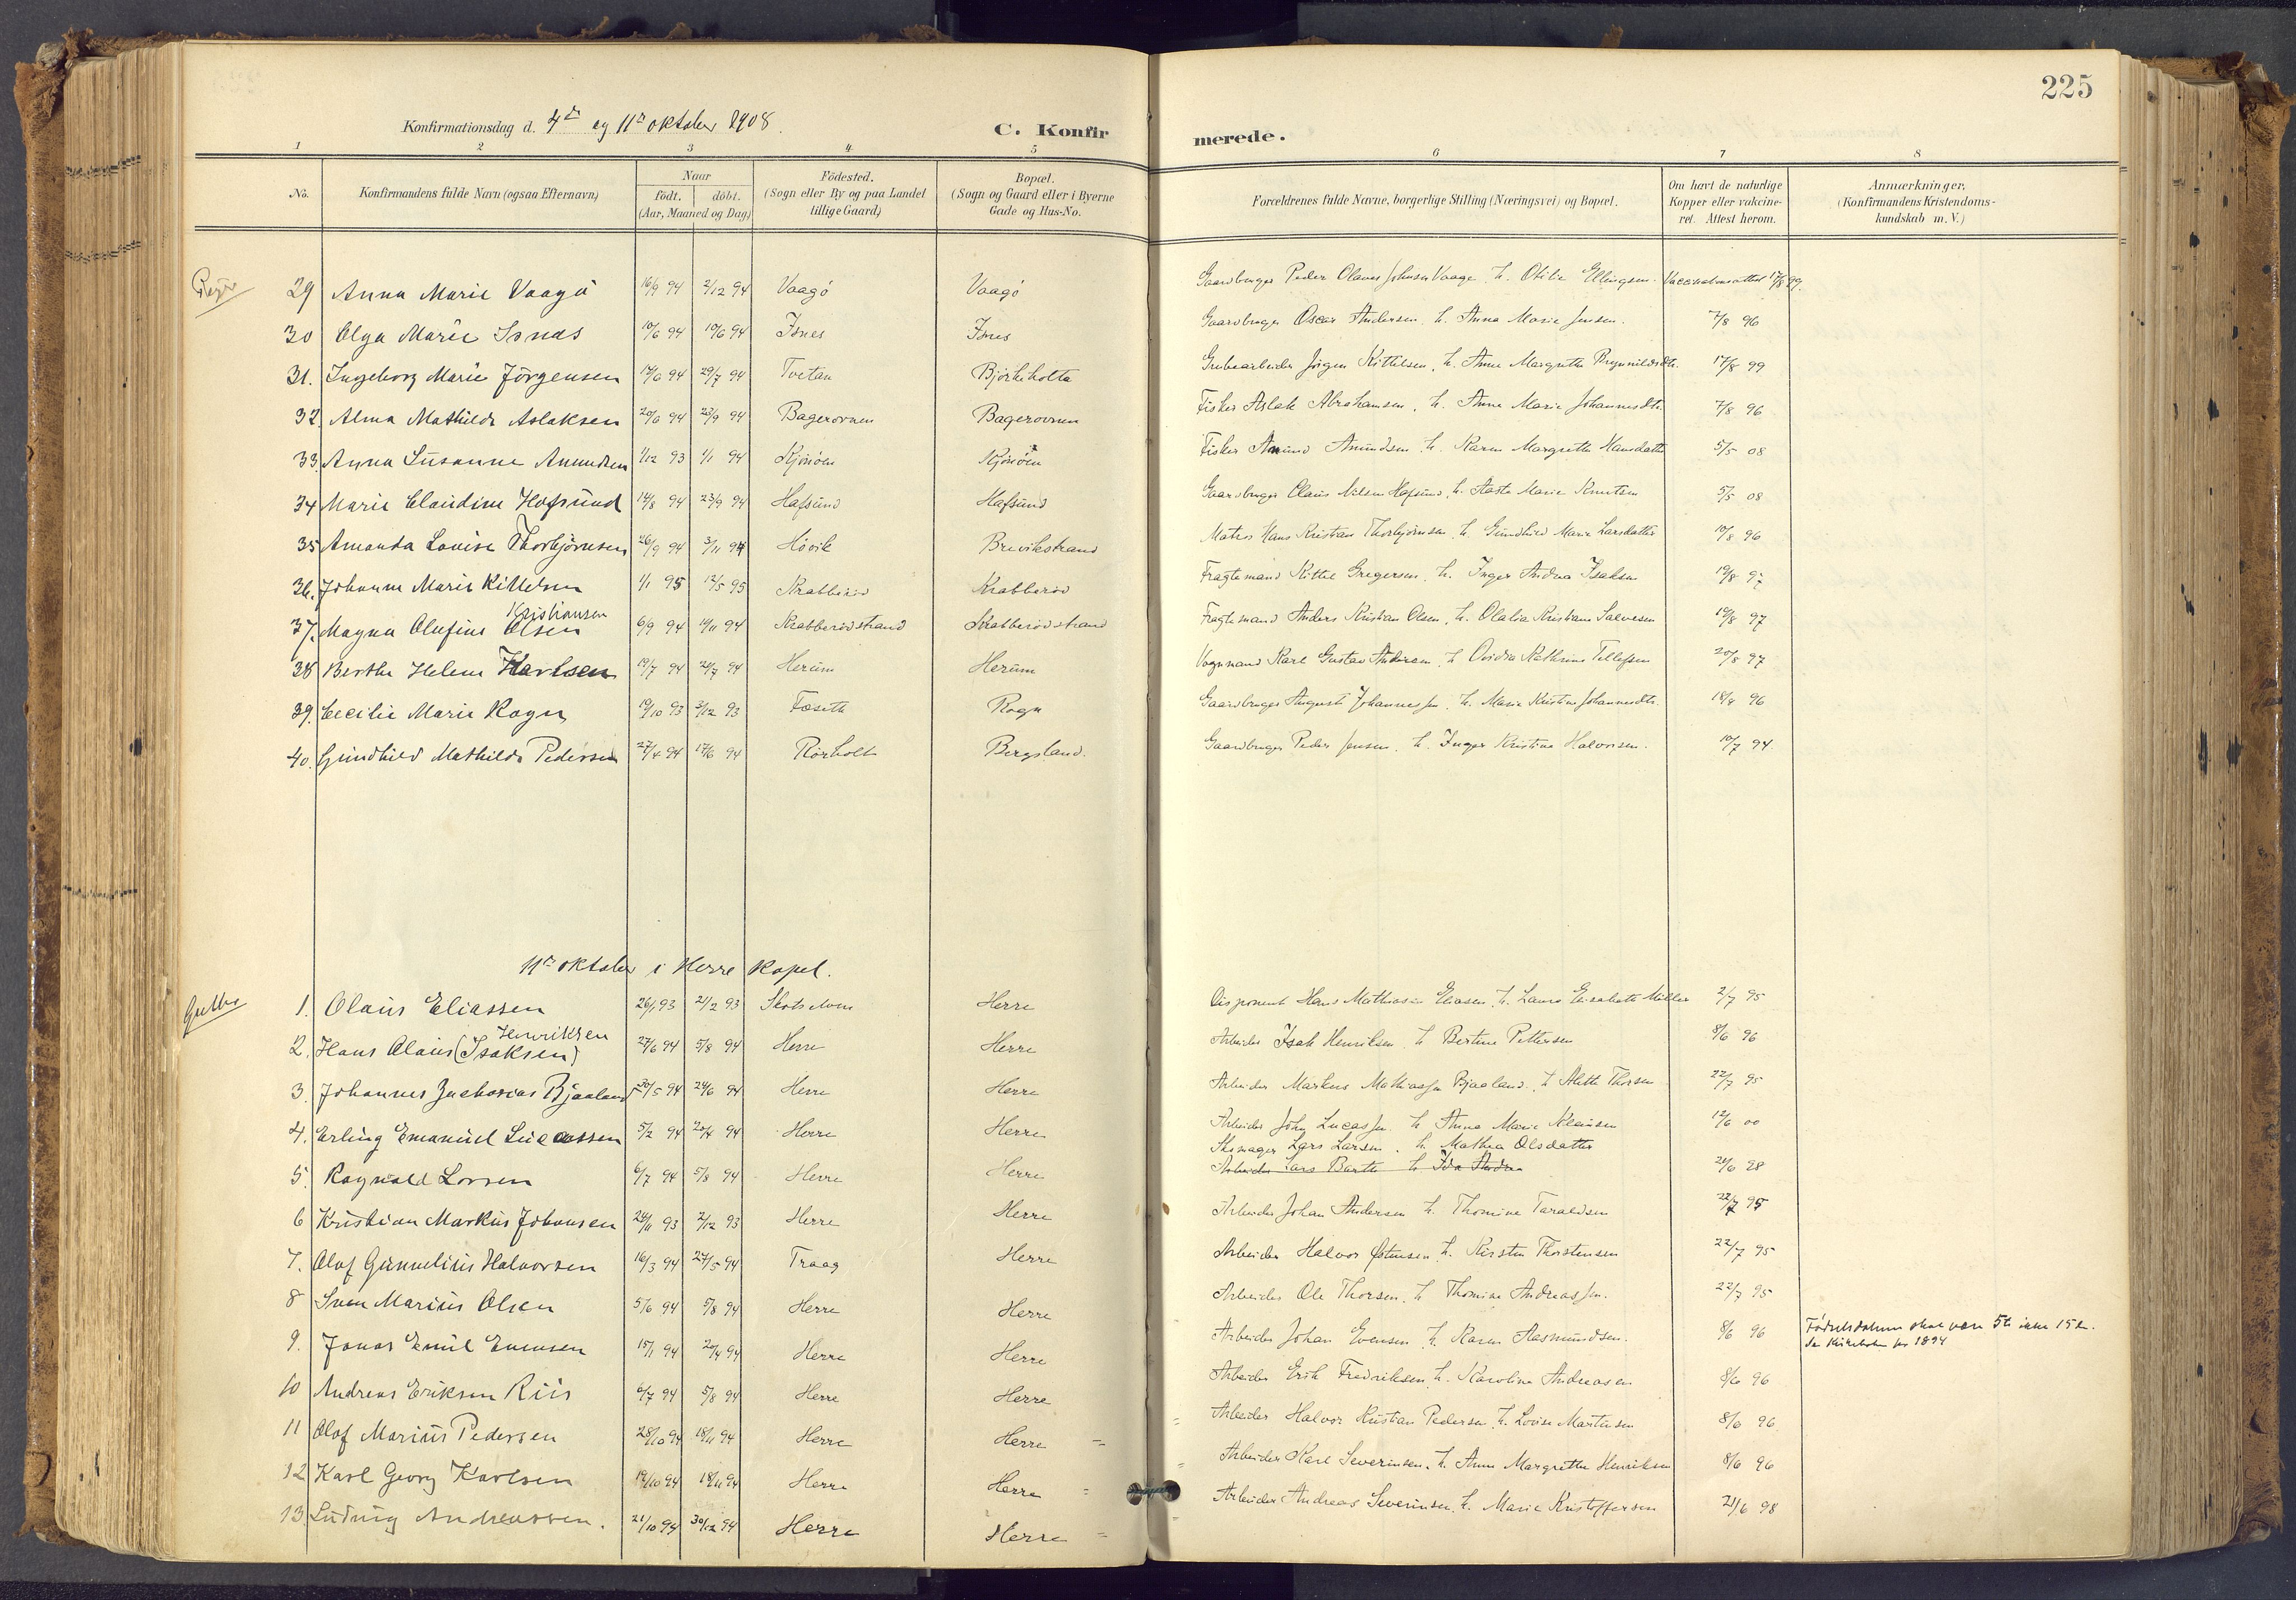 225
Konfirmationsdag d. 4de og 11te oktober 1908.
C. Konfirmerede.
1 2 3 4 5 6 7 8
No. Konfirmandens fulde Navn (ogsaa Efternavn) Naar født. døbt. (Aar, Maaned og Dag) Födested. (Sogn eller By og paa Landet tillige Gaard) Bopæl. (Sogn og Gaard eller i Byerne Gade og Hus-No. Forældrenes fulde Navne, borgerlige Stilling (Næringsvei) og Bopæl. Om havt de naturlige Kopper eller vakcineret. Attest herom. Anmærkninger, (Konfirmandens Kristendomskundskab m. V.)
29 Anna Marie Vaagö 16/9 94 2/12 94 Vaagö Vaagö Gaardbruger Peder Olaves Johnsen Vaage h. Otilie Ellingsen. Vaccinationsattest 17/8 99.
30 Olga Marie Isnæs 10/6 94 Isnes Isnes Gaardbruger Oscar Andersen h. Anna Marie Jensen. 7/8 96
31. Ingeborg Marie Jörgensen 29/7 94 Tvetan Björkeholta Grubearbeider Jörgen Kittilsen, h. Anne Margrethe Brynnildsdtr. 17/8 99
32. Alma Mathilde Aslaksen 20/6 94 23/9 94 Bagerovnen Bagerovnen Fisker Aslak Abrahamsen, h. Anne Marie Johannesdtr. 7/8 96
33. Anna Susanne Amundsen 1/12 93 1/1 94 Kjönöen Kjönöen Fisker Amund Amundsen h. Karen Margrethe Hansdatter 5/5 08
34 Marie Claudine Hafsund 14/8 94 23/9 94 Hafsund Hafsund Gaardbruger Olaus Nilsen Hafsund, h. Aaste Marie Knutsen 5/5 08
35 Amanda Lovise Thorbjörnsen 26/9 94 3/11 94 Hövik Brevikstrand Matros Hans Kristian Thorbjörnsen, h. Gundhild Marie Larsdatter 19/8 96
36. Johanne Marie Kittelsen 1/1 95 12/5 95 Krabberöd Krabberöd Fragtemand Kittil Gregersen, h. Inger Andrea Isaksen 19/8 97
37. Magna Olufine Olsen Kristiansen 6/9 94 Krabberödstrand Krabberödstrand Fragtemand Anders Kristian Olsen, h. Olalia Kristiane Salvesen 19/8 97
38 Berthe Helene Karlsen 19/7 94 Herum Herum Vognmand Karl Gustav Andersen h. Ovidia Kathrine Tellefsen 20/8 97
39. Cecilie Marie Rogn 19/10 93 3/12 93 Foseth Rogn Gaardbruger August Johannessen, h. Marie Kristine Johannesdtr. 96
40. Gundhild Mathilde Pedersen 27/4 94 17/6 94 Rörholt Bergsland. Gaardbruger Peder Jensen, h. Inger Kristine Halvorsen. 10/7 94
11te oktober i Herre Kapel.
Gutter
1. Olaus Eliassen 26/1 93 21/2 93 Herre Disponent Hans Mathias Eliasen, h. Laura Elisabeth Müller 2/7 95
Henriksen
2. Hans Olaus (Isaksen) 27/6 94 5/8 94 Herre Herre Arbeider Isak Henriksen, h. Bertine Pettersen 8/6 96
3. Johannes Zacharias Bjaaland 30/5 94 24/6 94 Herre Herre Arbeider Markus Mathiassen Bjaaland, h. Aleth Thorsen 22/7 95
4. Erling Emanuel Lucassen 5/2 94 Herre Herre Arbeider John Lucassen h. Anna Marie Nilsen 12/6 00
Skomager Lars Larsen, h. Mathea Olsdatter
5. Ragnvald Larsen 6/7 94 5/8 94 Herre Herre Arbeider Lars Barth h. Ida Andrea 21/6 98
6 Kristian Markus Johansen 24/11 93 2/12 93 Herre Herre Arbeider Johan Andersen h. Thomine Taraldsen 22/7 95
7. Olaf Gunnelius Halvorsen 16/3 94 27/5 94 Traag Herre Arbeider Halvor Østensen h. Kirstin Thorstensen 22/7 95
8 Sven Marius Olsen 5/6 94 5/8 94 Herre Herre Arbeider Ole Thorsen, h. Thomine Andreassen. 22/7 95
9. Jonas Emil Evensen 15/1 94 20/4 94 Herre Herre Arbeider Johan Evensen, h. Karen Aasmundsen. 8/6 96 Födselsdatum skal være 5te ikke 15de. Se Kirkebok for 1894
10 Andreas Eriksen Riis 6/7 94 5/8 94 Herre Herre Arbeider Erik Fredriksen, h. Karoline Andreasen 8/6 96
11 Olaf Marius Pedersen 28/10 94 18/11 94 Herre Herre Arbeider Halvor Kristian Pedersen, h. Lovise Martinsen 8/6 96
12 Karl Georg Karlsen 19/10 94 18/11 94 Herre Herre Arbeider Karl Severinsen, h. Anne Margrethe Henriksen 8/6 96
13. Ludvig Andreassen. 21/10 94 30/12 94 Herre Herre Arbeider Andreas Severinsen, h. Marie Kristoffersen 21/6 98